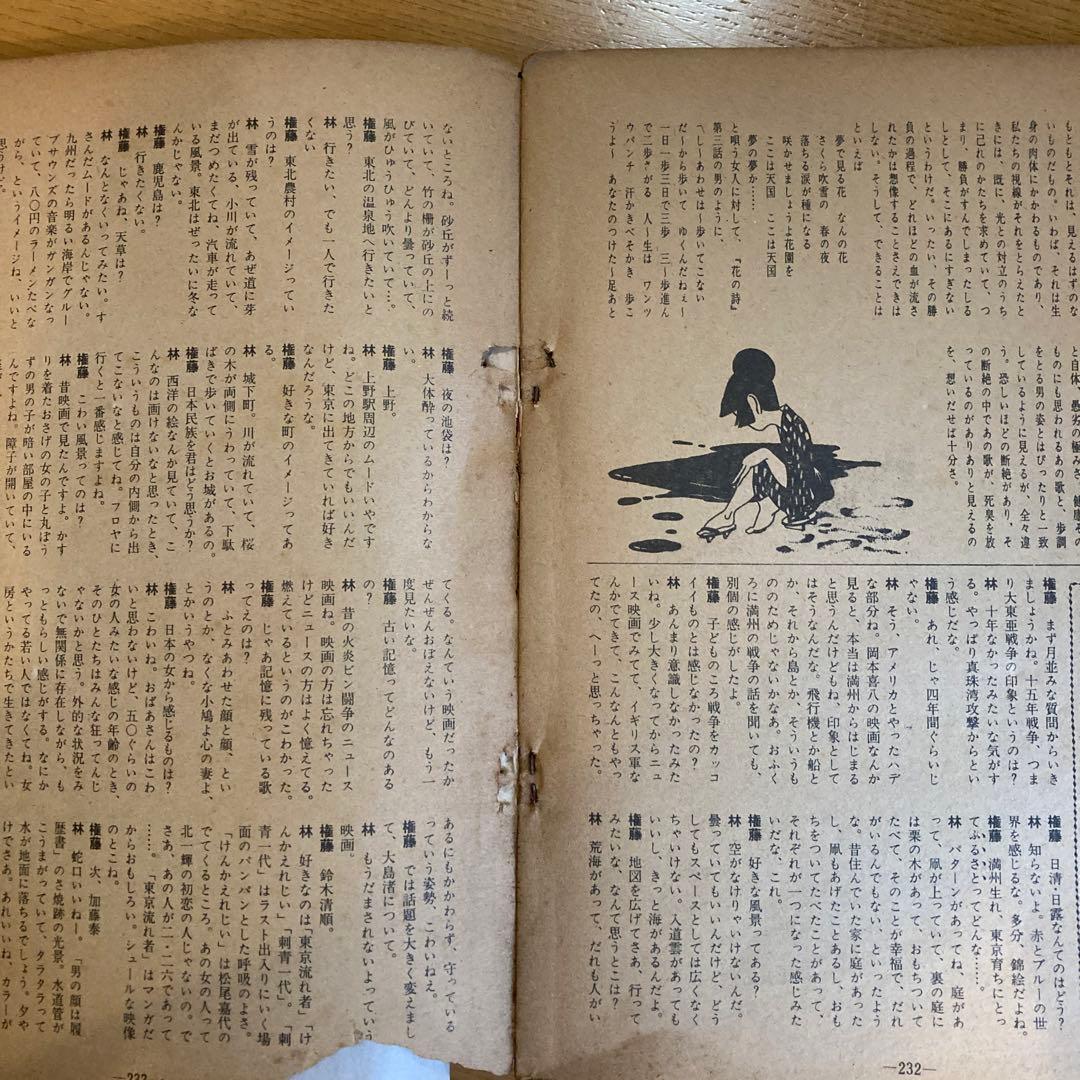 もともと、それは、見えるはずのな
いものだもの。いわば、それは生
身の肉体にかかわるものであり、
私たちの視線がそれをとらえたと
きには、既に、光との対立のうち
に己れのかたちを求めていて、つ
まり、勝負がすんでしまったしる
しとして、そこにあるにすぎない
というわけだ。いったい、その勝
負の過程で、どれほどの血が流さ
れたかは想像することさえできは
しない。そうして、できることは
といえば
夢で見る花　なんの花
さくら吹雪の　春の夜
落ちる涙が種になる
咲かせましょうよ花園を
ここは天国　ここは天国
夢の夢か……
と唄う女人に対して、『花の詩』
第三話の男のように、
へし〜あわせは〜歩いてこない
だ〜から歩いて　ゆくんだねぇ〜
一日一歩三日で三歩　三〜歩進ん
で二歩さがる　人〜生は　ワンツ
ウパンチ　汗かきべそかき　歩こ
うよ〜　あなたのつけた〜足あと
と自体、愚劣の極みさ。健康その
ものにも思われるあの歌と、歩調
をとる男の姿とはぴったりと一致
しているように見えるが、全々違
う。恐しいほどの断絶があり、そ
の断絶の中であの歌が、死臭を放
っているのがありありと見えるの
を、想いだせば十分さ。
権藤　まず月並みな質問からいき
ましょうかね。十五年戦争、つま
り大東亜戦争の印象というのは？
林　十年なかったみたいな気がす
る。やっぱり真珠湾攻撃からとい
う感じだな。
権藤　あれ、じゃ四年間ぐらいじ
ゃない。
林　そう、アメリカとやったハデ
な部分ね。岡本喜八の映画なんか
見ると、本当は満州からはじまる
と思うんだけどもね、印象として
はそうなんだな。飛行機とか船と
か、それから島とか、そういうも
のためじゃないかなあ。おふく
ろに満州の戦争の話を聞いても、
別個の感じがしたよ。
権藤　子どものころ戦争をカッコ
イイものとは感じなかったの？
林　あんまり意識しなかったみた
いね。少し大きくなってからニュ
ース映画でみてて、イギリス軍な
んかでてきて、こんなんともやっ
てたの、へーっと思っちゃった。
権藤　日清・日露なんてのはどう？
林　知らないよ。赤とブルーの世
界を感じるな。多分、錦絵だよね。
権藤　満州生れ、東京育ちにとっ
てふるさとってどんな……。
林　パターンがあってね、庭があ
って、凧が上っていて、裏の庭に
は栗の木があって、おもちついて
たべて、そのことが幸福で、だれ
がいるんでもない、といったよう
な。昔住んでいた家に庭があった
し、凧もあげたことはあるし、おも
ちをついてたべたことがあって、
それぞれが一つになった感じみた
いだな、これ。
権藤　好きな風景ってある？
林　空がなけりゃいけないんだ。
曇っていてもいいんだけど、どう
してもスペースとしては広くなく
ちゃいけない。入道雲があっても
いいし、きっと海があるんだよ。
権藤　地図を広げてさあ、行って
みたいな、なんて思うとこは？
林　荒海があって、だれも人がい
—232—
ないところね。砂丘がずーっと続
いていて、竹の柵が砂丘の上にの
びていて、どんより曇っていて、
風がひゅうひゅう吹いていて…。
権藤　東北の温泉地へ行きたいと
思う？
林　行きたい、でも一人で行きた
くない
権藤　東北農村のイメージってい
うのは？
林　雪が残っていて、あぜ道に芽
が出ている、小川が流れていて、
まだつめたくてね、汽車が走って
いる風景。東北はぜったいに冬な
んかじゃない。
権藤　鹿児島は？
林　行きたくない。
権藤　じゃあね、天草は？
林　なんとなくいってみたい。す
さんだムードがあるんじゃない。
九州だったら明るい海岸でグルー
プサウンズの音楽がガンガンなっ
ていて、八〇円のラーメンたべな
がら、というイメージね、いいと
思うけど。
権藤　夜の池袋は？
林　大体酔っているからわからな
い。
権藤　上野。
林　上野駅周辺のムードいやです
ね。どこの地方からでもいいんだ
けど、東京に出てきていれば好き
なんだろうな。
権藤　好きな町のイメージってあ
る。
林　城下町。川が流れていて、桜
の木が両側にうわっていて、下駄
ばきで歩いていくとお城があるの。
権藤　日本民族を君はどう思うか？
林　西洋の絵なんか見ていて、こ
んなのは画けないなと思ったとき、
こういうものは自分の内側から出
てこないなと感じてね。フロヤに
行くと一番感じますよね。
権藤　こわい風景ってのは？
林　昔映画で見たんですよ。かす
りを着たおさげの女の子と丸ぼう
ずの男の子が暗い部屋の中にいる
んですよね。障子が開いていて、
てくる。なんていう映画だったか
ぜんぜんおぼえないけど、もう一
度見たいな。
権藤　古い記憶ってどんなのある
の？
林　昔の火炎ビン闘争のニュース
映画ね。映画の方は忘れちゃった
けどニュースの方はよく憶えてる。
燃えているというのがこわかった。
権藤　じゃあ記憶に残っている歌
ってえのは？
林　ふとみあわせた顔と顔、とい
うのとか、なくな小鳩よ心の妻よ、
とかいうやつね。
権藤　日本の女から感じるものは？
林　こわいね。おばあさんはこわ
いと思わないけど、五〇ぐらいの
女の人みたいな感じの年齢のとき、
そのひとたちはみんな狂ってんじ
ゃないかと思う。外的な状況をみ
ないで無関係に存在しながら、も
っともらしい感じがする。なにか
やってる若い人ではなくてね。女
房というかたちで生きてきたとい
あるにもかかわらず、守っている
っていう姿勢、こわいねえ。
権藤　では話題を大きく変えまし
て、大島渚について。
林　もうだまされないよっていう
映画。
権藤　鈴木清順。
林　好きなのは「東京流れ者」「け
んかえれじい」「刺青一代」。「刺
青一代」はラスト出入りにいく場
面のパンパンとした呼吸のよさ。
「けんかえれじい」は松尾嘉代の
でてくるところ。あの女の人って
北一輝の初恋の人じゃないの。で
さあ、あの人が二・二六であって
……。「東京流れ者」はマンガだ
からおもしろい。シュールな映像
のとこね。
権藤　次、加藤泰
林　蛇口いいねー。「男の顔は履
歴書」のさ焼跡の光景。水道管が
こうまがっていて、タラタラって
水が地面に落ちるでしょう。夕や
けでさあ。あれいいね、カラーが
—233—